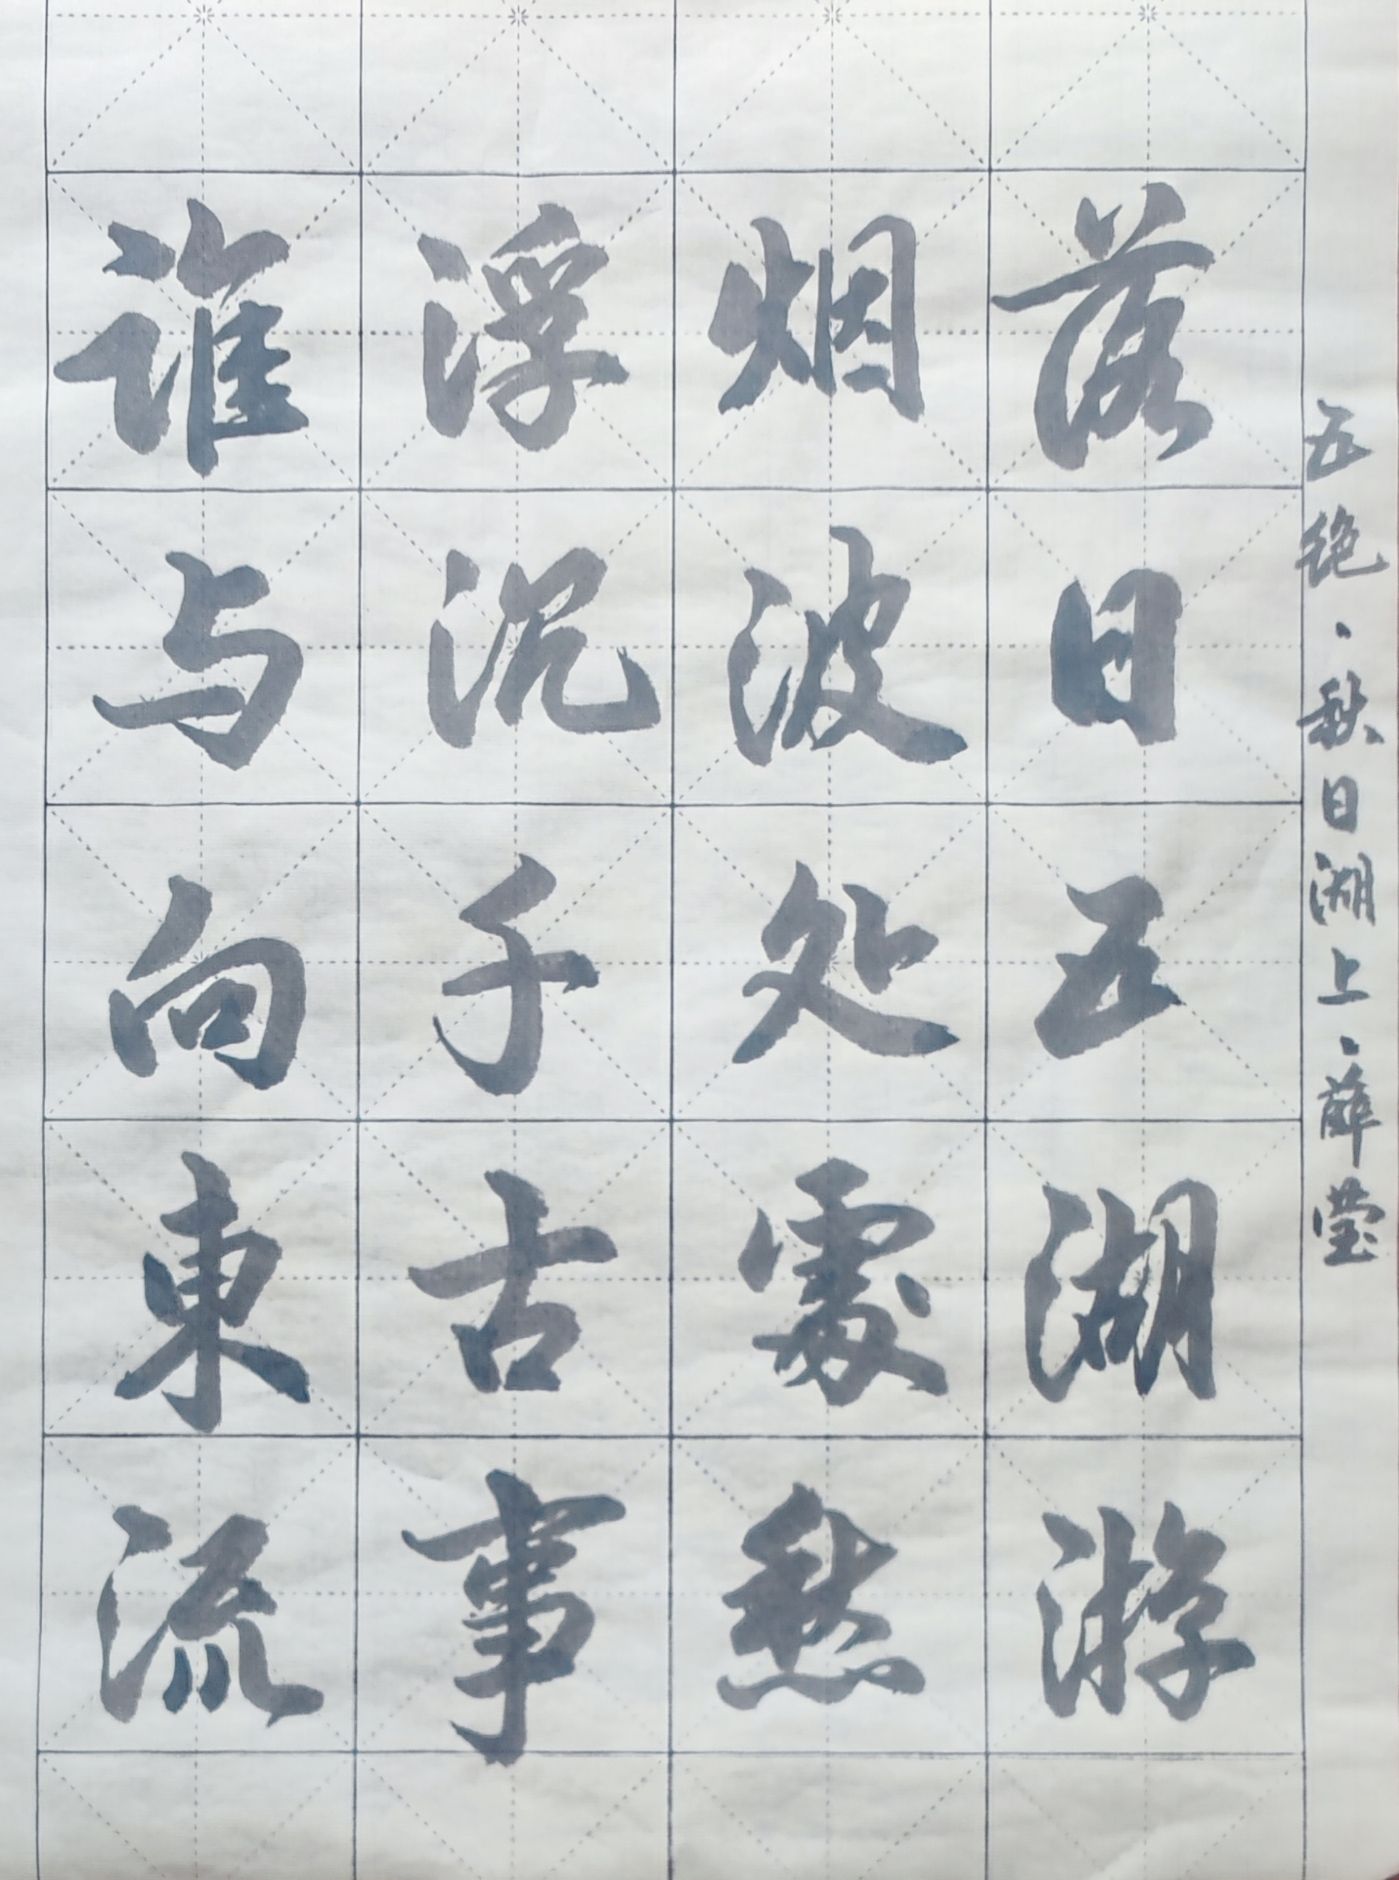 五绝·秋日湖上·薛莹
落日五湖游
烟波处處愁
浮沉千古事
谁与向東流